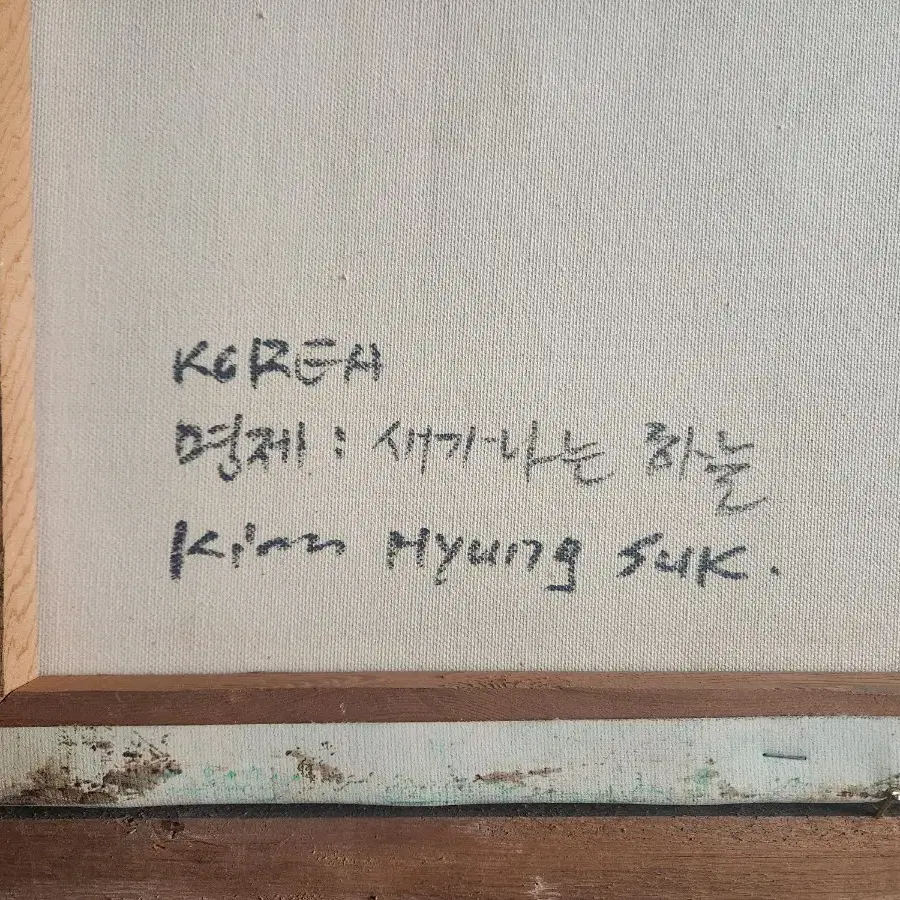 KOREA
명제 : 새가 나는 하늘
Kim Hyung SuK.